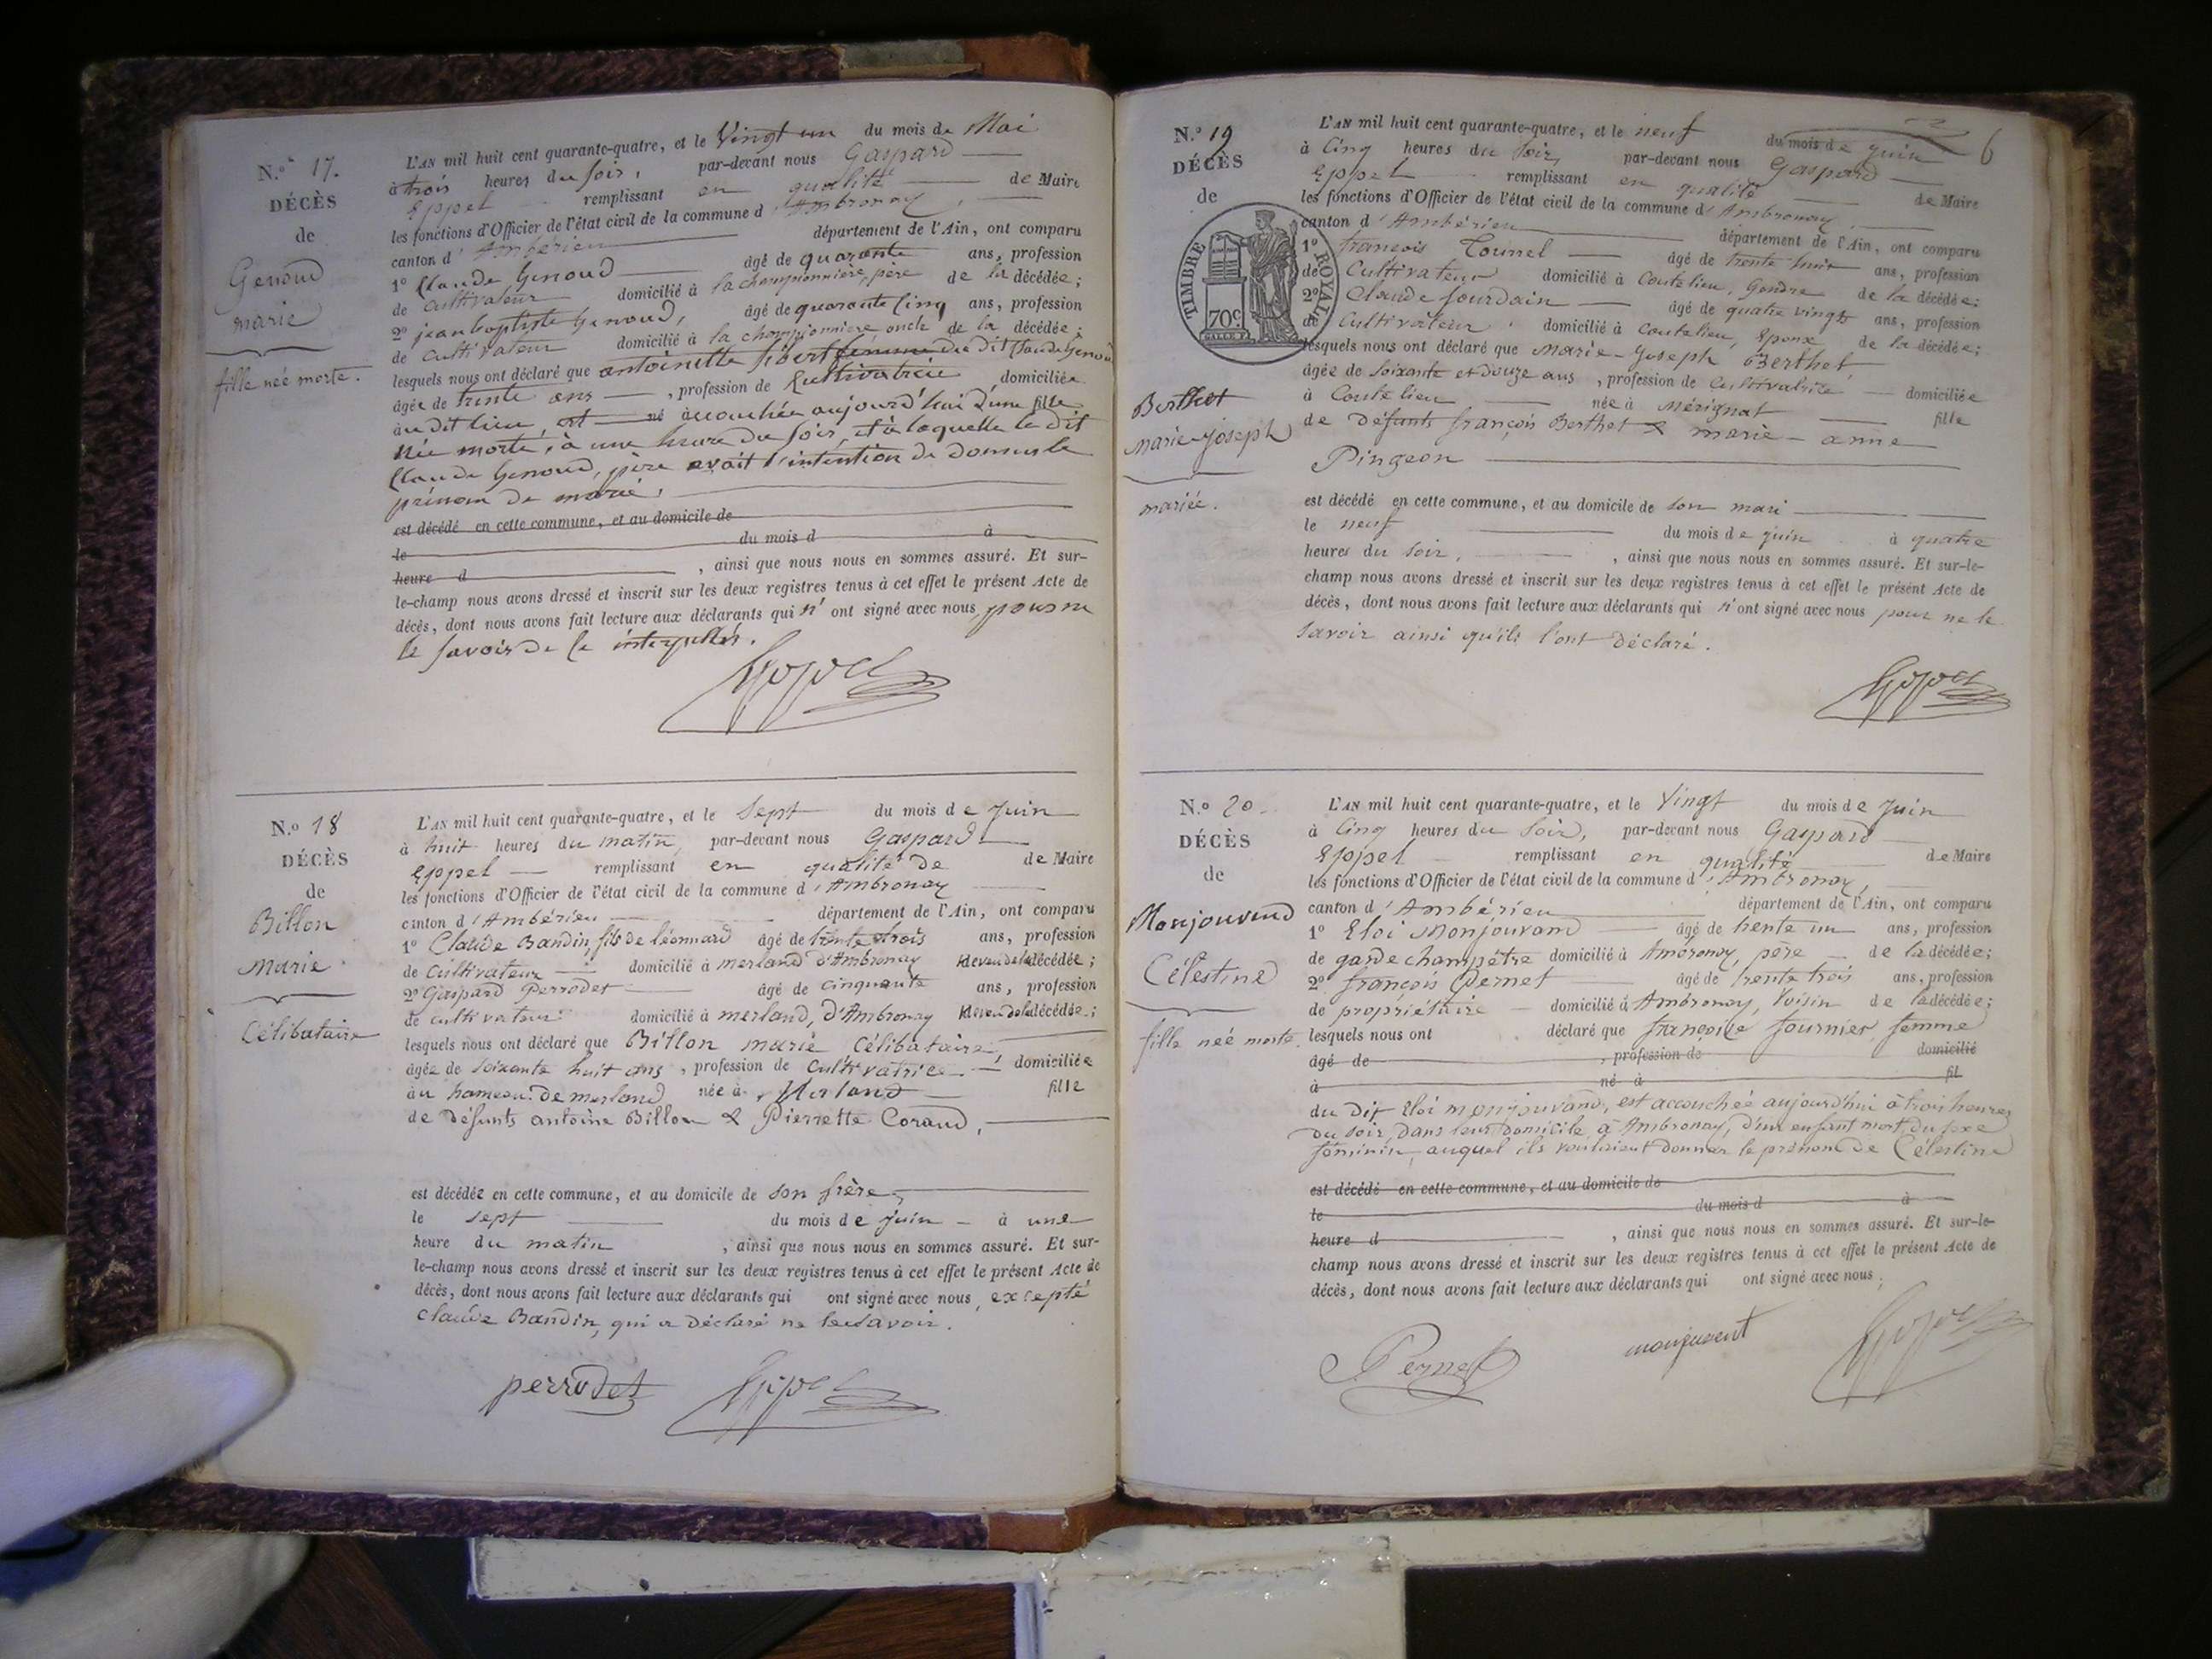 N.º 17.
DÉCÈS
de
Genoud
marie
fille née morte.
L'AN mil huit cent quarante-quatre, et le Vingt un du mois de Mai
à trois heures du soir, par-devant nous Gaspard
Eppel remplissant en qualité de Maire
les fonctions d'Officier de l'état civil de la commune d'Ambronay,
canton d'Ambérieu département de l'Ain, ont comparu
1º Claude Genoud âgé de quarante ans, profession
de cultivateur domicilié à la championnière, père de la décédée;
2º jean baptiste Genoud, âgé de quarante cinq ans, profession
de cultivateur domicilié à la championnière oncle de la décédée;
lesquels nous ont déclaré que antoinette femme du dit Claude Genoud
âgée de trente ans, profession de Cultivatrice domiciliée
au dit lieu, est né accouchée aujourd'hui d'une fille
Née morte, à une heure du soir, et à laquelle le dit
Claude Genoud, père avait l'intention de donner le
prénom de marie.
est décédé en cette commune, et au domicile de
le du mois d à
heure d , ainsi que nous nous en sommes assuré. Et sur-
le-champ nous avons dressé et inscrit sur les deux registres tenus à cet effet le présent Acte de
décès, dont nous avons fait lecture aux déclarants qui n'ont signé avec nous, pour ne
le savoir de ce interpellés.
Eppel
N.º 18
DÉCÈS
de
Billon
Marie
Célibataire
L'AN mil huit cent quarante-quatre, et le Sept du mois de Juin
à huit heures du matin, par-devant nous Gaspard
Eppel remplissant en qualité de de Maire
les fonctions d'Officier de l'état civil de la commune d'Ambronay
canton d'Ambérieu département de l'Ain, ont comparu
1º Claude Bandin, fils de léonnard âgé de trente trois ans, profession
de Cultivateur domicilié à merland d'Ambronay neveu de la décédée;
2º Gaspard Perrodet âgé de cinquante ans, profession
de cultivateur domicilié à merland, d'Ambronay neveu de la décédée;
lesquels nous ont déclaré que Billon marie Célibataire,
âgée de soixante huit ans, profession de Cultivatrice domiciliée
au hameau de merland née à Merland fille
de défunts antoine Billon & Pierrette Coraud,
est décédée en cette commune, et au domicile de son frère,
le sept du mois de juin à une
heure du matin, ainsi que nous nous en sommes assuré. Et sur-
le-champ nous avons dressé et inscrit sur les deux registres tenus à cet effet le présent Acte de
décès, dont nous avons fait lecture aux déclarants qui ont signé avec nous, excepté
Claude Bandin, qui a déclaré ne le savoir.
perrodet Eppel
6
N.º 19
DÉCÈS
de
TIMBRE ROYAL
70c
Berthet
Marie-joseph
mariée.
L'AN mil huit cent quarante-quatre, et le neuf du mois de juin
à Cinq heures du soir, par-devant nous Gaspard
Eppel remplissant en qualité de Maire
les fonctions d'Officier de l'état civil de la commune d'Ambronay
canton d'Ambérieu département de l'Ain, ont comparu
1º françois Tournel âgé de trente huit ans, profession
de Cultivateur domicilié à Coutelieu, Gendre de la décédée;
2º Claude Jourdain âgé de quatre vingts ans, profession
de Cultivateur domicilié à Coutelieu, Epoux de la décédée;
lesquels nous ont déclaré que Marie-Joseph Berthet
âgée de soixante et douze ans, profession de Cultivatrice domiciliée
à Coutelieu née à Mérignat fille
de défunts françois Berthet & marie-anne
Pingeon
est décédé en cette commune, et au domicile de son mari
le neuf du mois de juin à quatre
heures du soir, ainsi que nous nous en sommes assuré. Et sur-le-
champ nous avons dressé et inscrit sur les deux registres tenus à cet effet le présent Acte de
décès, dont nous avons fait lecture aux déclarants qui n'ont signé avec nous pour ne le
savoir ainsi qu'ils l'ont déclaré.
Eppel
N.º 20.
DÉCÈS
de
Monjouvend
Célestine
fille née morte.
L'AN mil huit cent quarante-quatre, et le Vingt du mois de Juin
à Cinq heures du Soir, par-devant nous Gaspard
Eppel remplissant en qualité de Maire
les fonctions d'Officier de l'état civil de la commune d'Ambronay,
canton d'Ambérieu département de l'Ain, ont comparu
1º Eloi Monjouvand âgé de trente un ans, profession
de garde champêtre domicilié à Ambronay, père de la décédée;
2º françois Pernet âgé de trente trois ans, profession
de propriétaire domicilié à Ambronay, Voisin de la décédée;
lesquels nous ont déclaré que françoise fournier femme
âgé de , profession de domicilié
à né à fil
du dit Eloi monjouvand, est accouchée aujourd'hui à trois heures
du soir, dans leur domicile à Ambronay, d'un enfant mort du sexe
féminin, auquel ils voulaient donner le prénom de Célestine
est décédé en cette commune, et au domicile de
le du mois d à
heure d , ainsi que nous nous en sommes assuré. Et sur-le-
champ nous avons dressé et inscrit sur les deux registres tenus à cet effet le présent Acte de
décès, dont nous avons fait lecture aux déclarants qui ont signé avec nous;
Pernet monjuvent Eppel